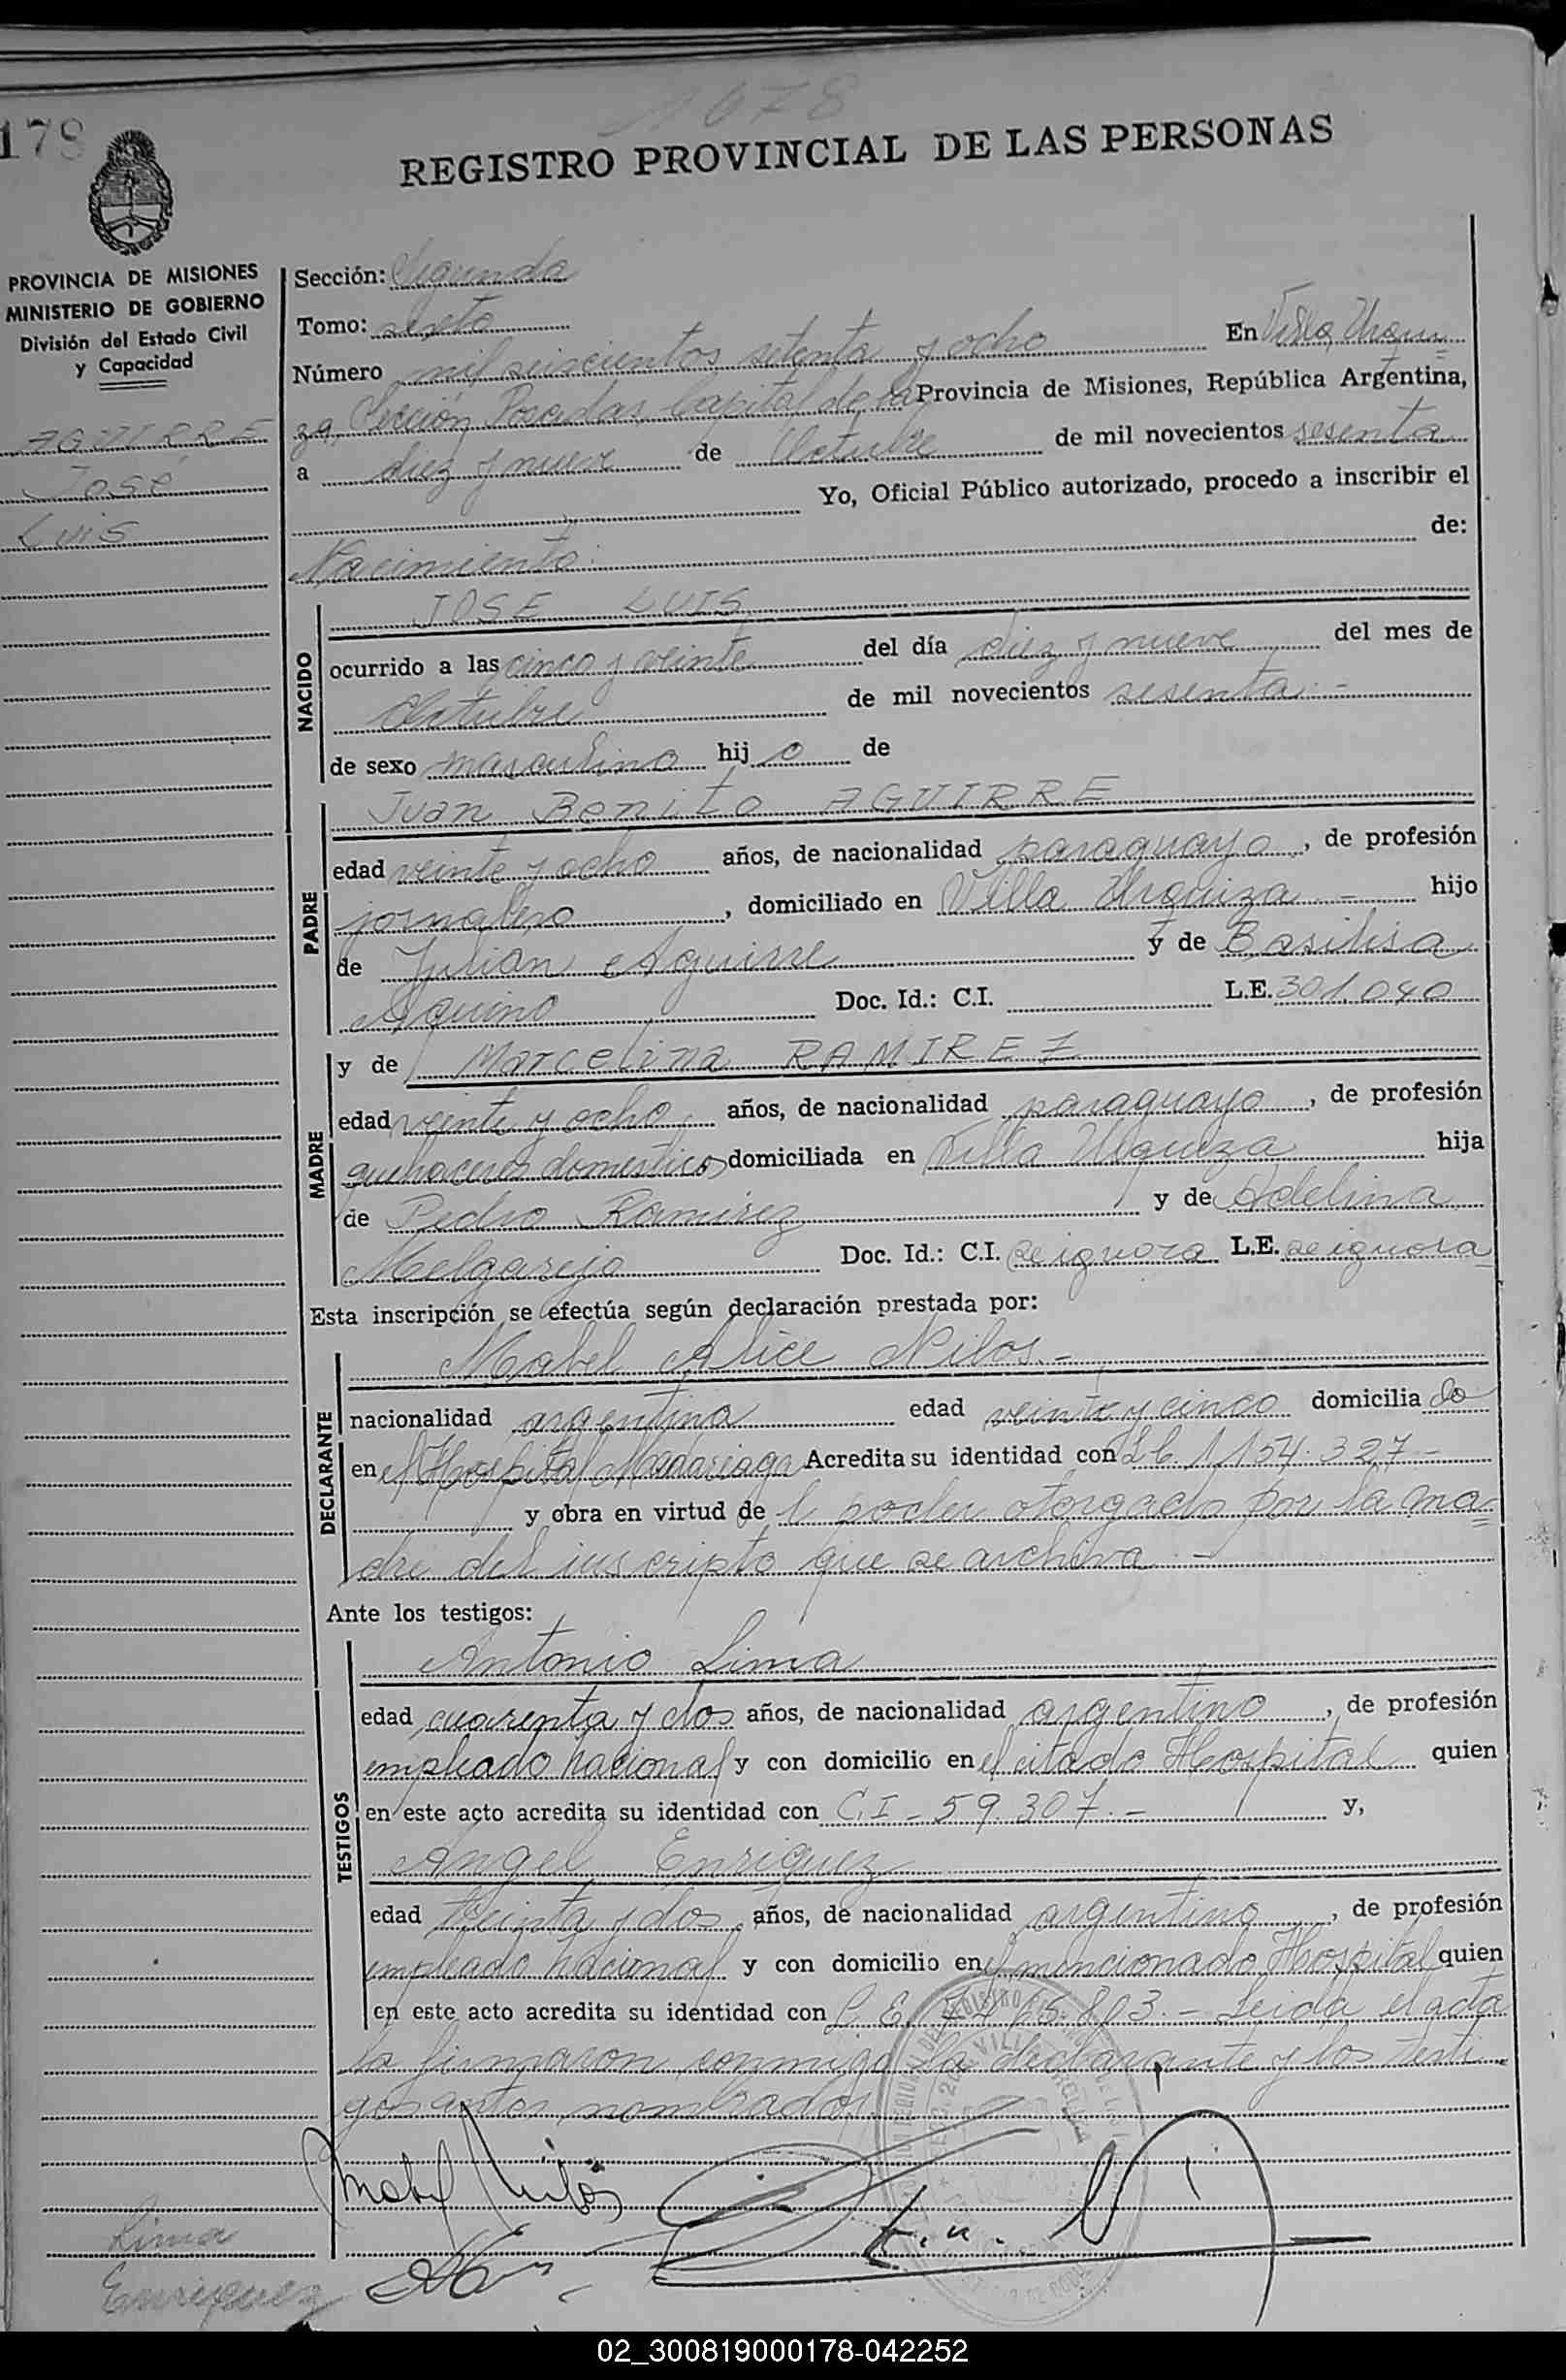 1678
178
REGISTRO PROVINCIAL DE LAS PERSONAS
PROVINCIA DE MISIONES
MINISTERIO DE GOBIERNO
División del Estado Civil
y Capacidad
AGUIRRE
José
Luis
Sección: Segunda
Tomo: sexto
Número mil seiscientos setenta y ocho En Villa Urqui
za, Sección Posadas, Capital de la Provincia de Misiones, República Argentina,
a diez y nueve de Octubre de mil novecientos sesenta
Yo, Oficial Público autorizado, procedo a inscribir el
Nacimiento de:
NACIDO
JOSE LUIS
ocurrido a las cinco y veinte del día diez y nueve del mes de
Octubre de mil novecientos sesenta.-
de sexo masculino hij o de
PADRE
Juan Benito AGUIRRE
edad veinte y ocho años, de nacionalidad paraguayo, de profesión
jornalero, domiciliado en Villa Urquiza - hijo
de Julian Aguirre y de Basilisa
Aquino Doc. Id.: C.I. L.E. 301.040
MADRE
y de Marcelina RAMIREZ
edad veinte y ocho años, de nacionalidad paraguaya, de profesión
quehaceres domésticos domiciliada en Villa Urquiza hija
de Pedro Ramirez y de Adelina
Melgarejo Doc. Id.: C.I. se ignora L.E. se ignora
Esta inscripción se efectúa según declaración prestada por:
DECLARANTE
Mabel Alice Nilos.-
nacionalidad argentina edad veinte y cinco domicilia do
en el Hospital Madariaga Acredita su identidad con L.C. 1.154.327-
y obra en virtud de l poder otorgado por la ma
dre del inscripto que se archiva.-
Ante los testigos:
TESTIGOS
Antonio Lima
edad cuarenta y dos años, de nacionalidad argentino, de profesión
empleado nacional y con domicilio en el citado Hospital quien
en este acto acredita su identidad con C.I - 59.307.- y,
Angel Enriquez
edad treinta y dos años, de nacionalidad argentino, de profesión
empleado nacional y con domicilio en el mencionado Hospital quien
en este acto acredita su identidad con L.E. 7.465.803.- Leida el acta
la firmaron conmigo la declarante y los testi
gos antes nombrados
Mabel Nilos
Lima
Enriquez
02_300819000178-042252